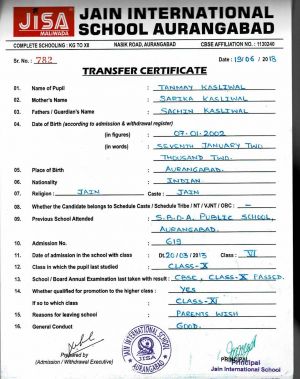 JISA
MALIWADA
JAIN INTERNATIONAL
SCHOOL AURANGABAD
COMPLETE SCHOOLING : KG TO XII NASIK ROAD, AURANGABAD CBSE AFFILIATION NO. : 1130240
Sr. No. : 782 Date : 19/06 / 2018
TRANSFER CERTIFICATE
01. Name of Pupil : TANMAY KASLIWAL
02. Mother's Name : SARIKA KASLIWAL
03. Fathers / Guardian's Name : SACHIN KASLIWAL
04. Date of Birth (according to admission & withdrawal register)
(in figures) : 07-01-2002
(in words) : SEVENTH JANUARY TWO
THOUSAND TWO.
05. Place of Birth : AURANGABAD.
06. Nationality : INDIAN.
07. Religion : JAIN Caste : JAIN
08. Whether the Candidate belongs to Schedule Caste / Schedule Tribe / NT / VJNT / OBC : –
09. Previous School Attended : S.B.O.A. PUBLIC SCHOOL,
AURANGABAD.
10. Admission No. : 619
11. Date of admission in the school with class : Dt. 20/03/2013 Class : VI
12. Class in which the pupil last studied : CLASS-X
13. School / Board Annual Examination last taken with result : CBSE, CLASS-X PASSED.
14. Whether qualified for promotion to the higher class : YES
If so to which class : CLASS-XI
15. Reasons for leaving school : PARENTS WISH
16. General Conduct : GOOD.
Prepared by
(Admission / Withdrawal Executive)
JAIN INTERNATIONAL SCHOOL
JISA
AURANGABAD
PRINCIPAL
Principal
Jain International School